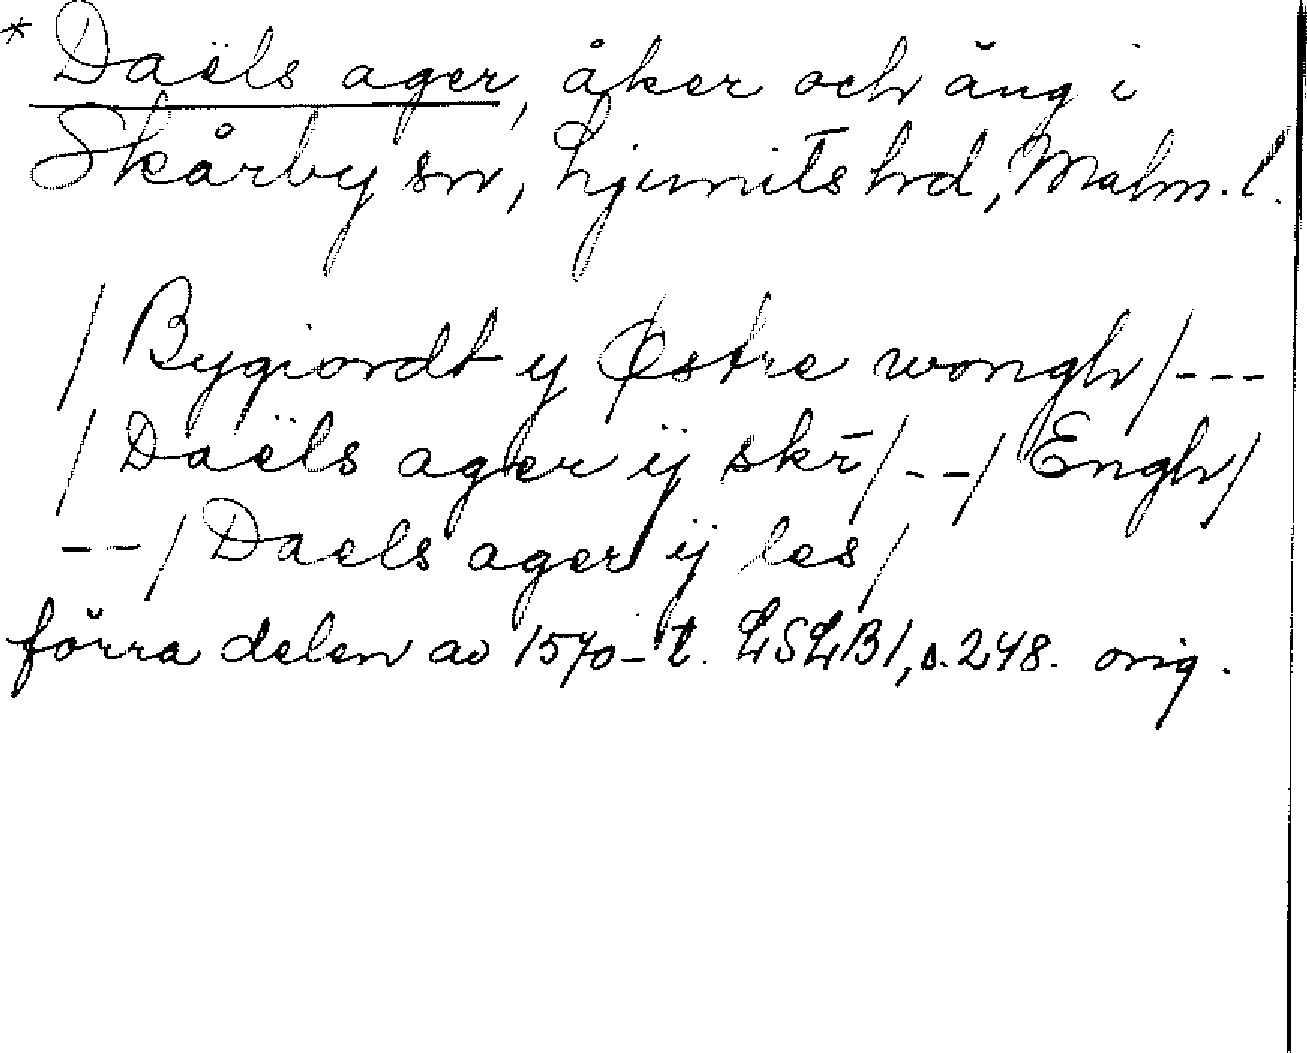 * Daëls ager, åker och äng i
Skårby sn, Ljunits hrd, Malm. l.
/ Bygiordt y Østre wongh / ---
/ Daëls ager ÿ skr̄ / -- / Engh /
-- / Daels ager ÿ les /
förra delen av 1570-t. LSLB1, s. 248. orig.